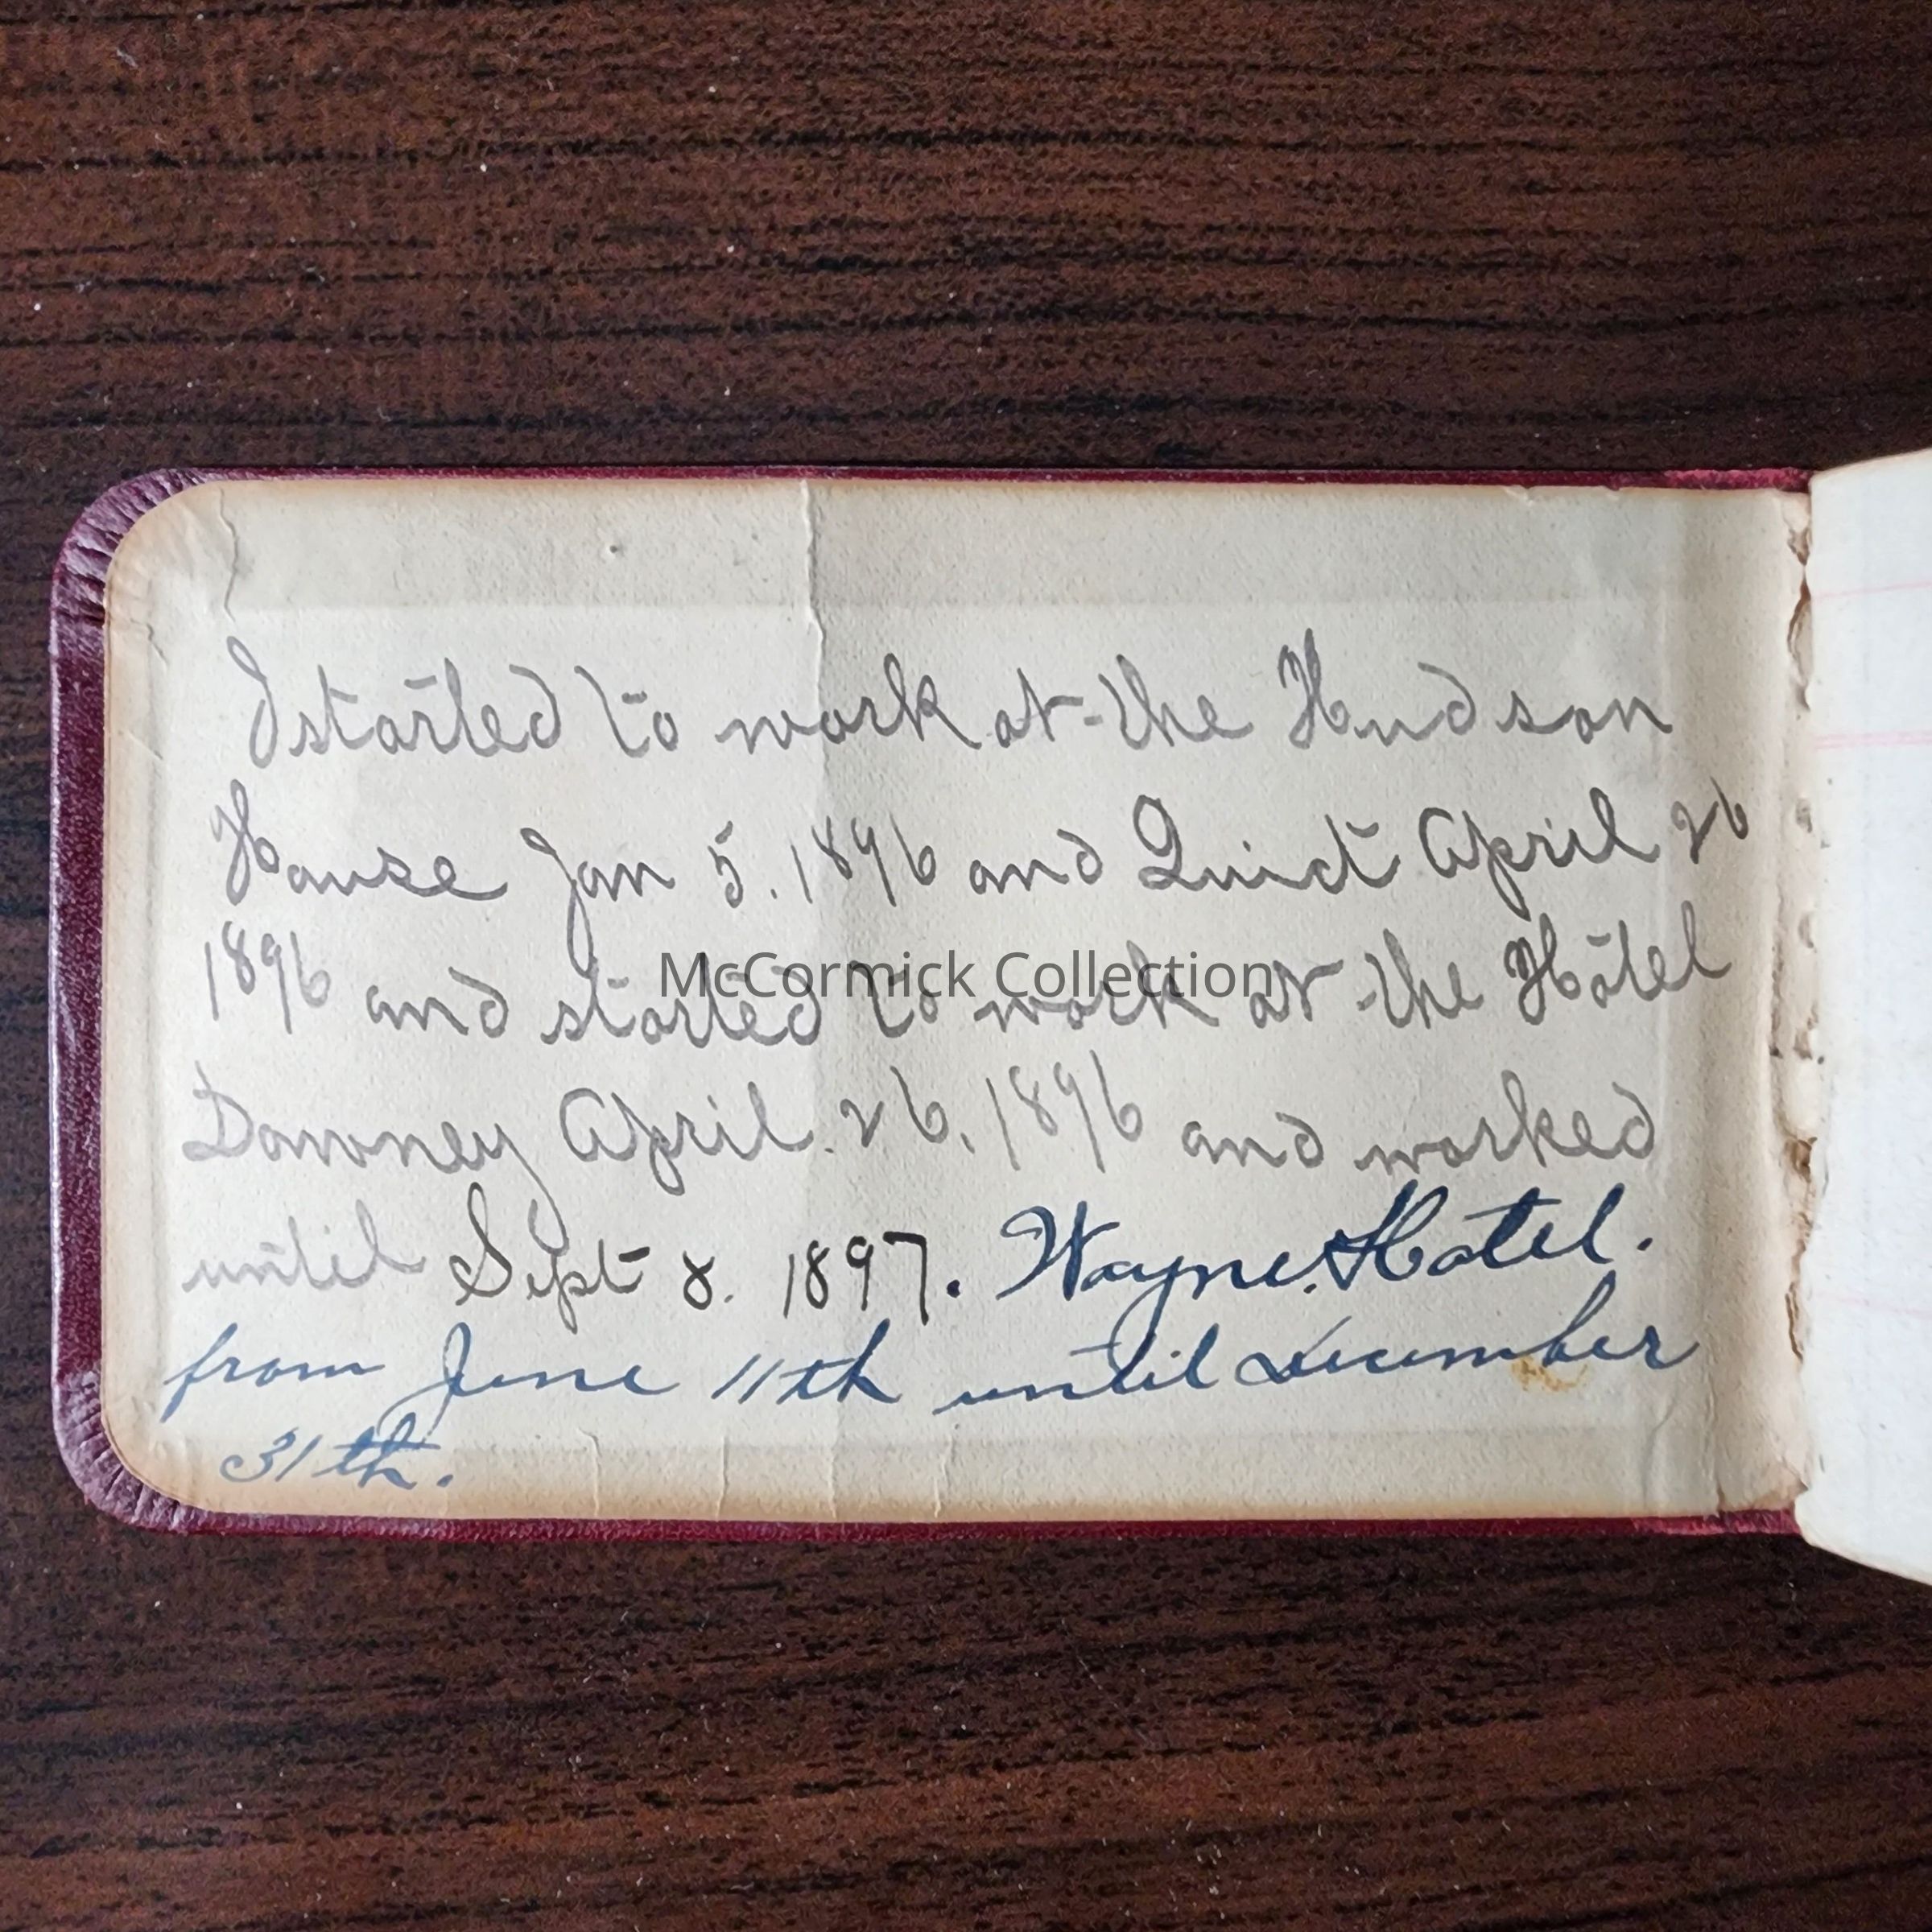 I started to work at the Hudson
House Jan 5. 1896 and Quict April 26
1896 and started to work at the Hotel
McCormick Collection
Downey April. 26. 1896 and worked
until Sept 8. 1897. Wayne. Hotel.
from June 11th until December
31th.